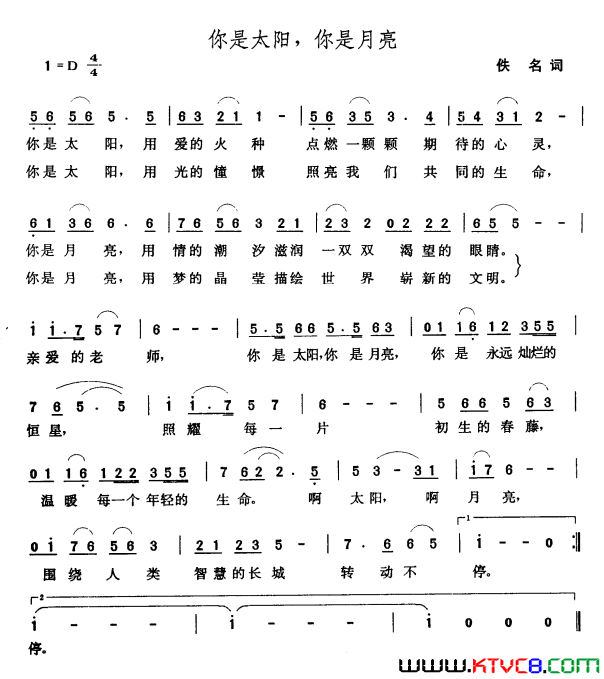 你是太阳，你是月亮
1=D 4/4 佚 名 词
5 6 5 6 5 · 5 | 6 3 2 1 1 - | 5 6 3 5 3 · 4 | 5 4 3 1 2 - |
你是 太 阳，用 爱的 火 种 点燃 一颗颗 期 待的 心 灵，
你是 太 阳，用 光的 憧 憬 照亮 我们 共 同的 生 命，
6 1 3 6 6 · 6 | 7 6 5 6 3 2 1 | 2 3 2 0 2 2 2 | 6 5 5 - - |
你是 月 亮，用 情的 潮 汐滋润 一双双 渴 望的 眼睛。
你是 月 亮，用 梦的 晶 莹描绘 世 界 崭 新的 文明。
i i · 7 5 7 | 6 - - - | 5 · 5 6 6 5 · 5 6 3 | 0 1 1 6 1 2 3 5 5 |
亲 爱 的 老 师， 你 是 太阳，你 是 月亮， 你 是 永远 灿烂的
7 6 5 · 5 | i i · 7 5 7 | 6 - - - | 5 6 6 5 6 3 |
恒 星， 照 耀 每 一 片 初 生 的 春 藤，
0 1 1 6 1 2 2 3 5 5 | 7 6 2 2 · 5 | 5 3 - 3 1 | i 7 6 - |
温 暖 每一个 年轻的 生 命。 啊 太阳， 啊 月 亮，
0 i 7 6 5 6 3 | 2 1 2 3 5 - | 7 · 6 6 5 | 1 i - - 0 :||
围 绕 人 类 智慧 的长 城 转 动 不 停。
2 i - - - | i - - - | i - - - | i 0 0 0 ||
停。
www.KTVC8.com